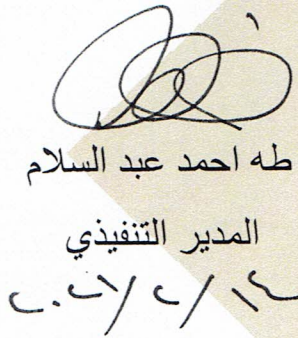 طه احمد عبد السلام
المدير التنفيذي
٢٠٢١/٢/١٤